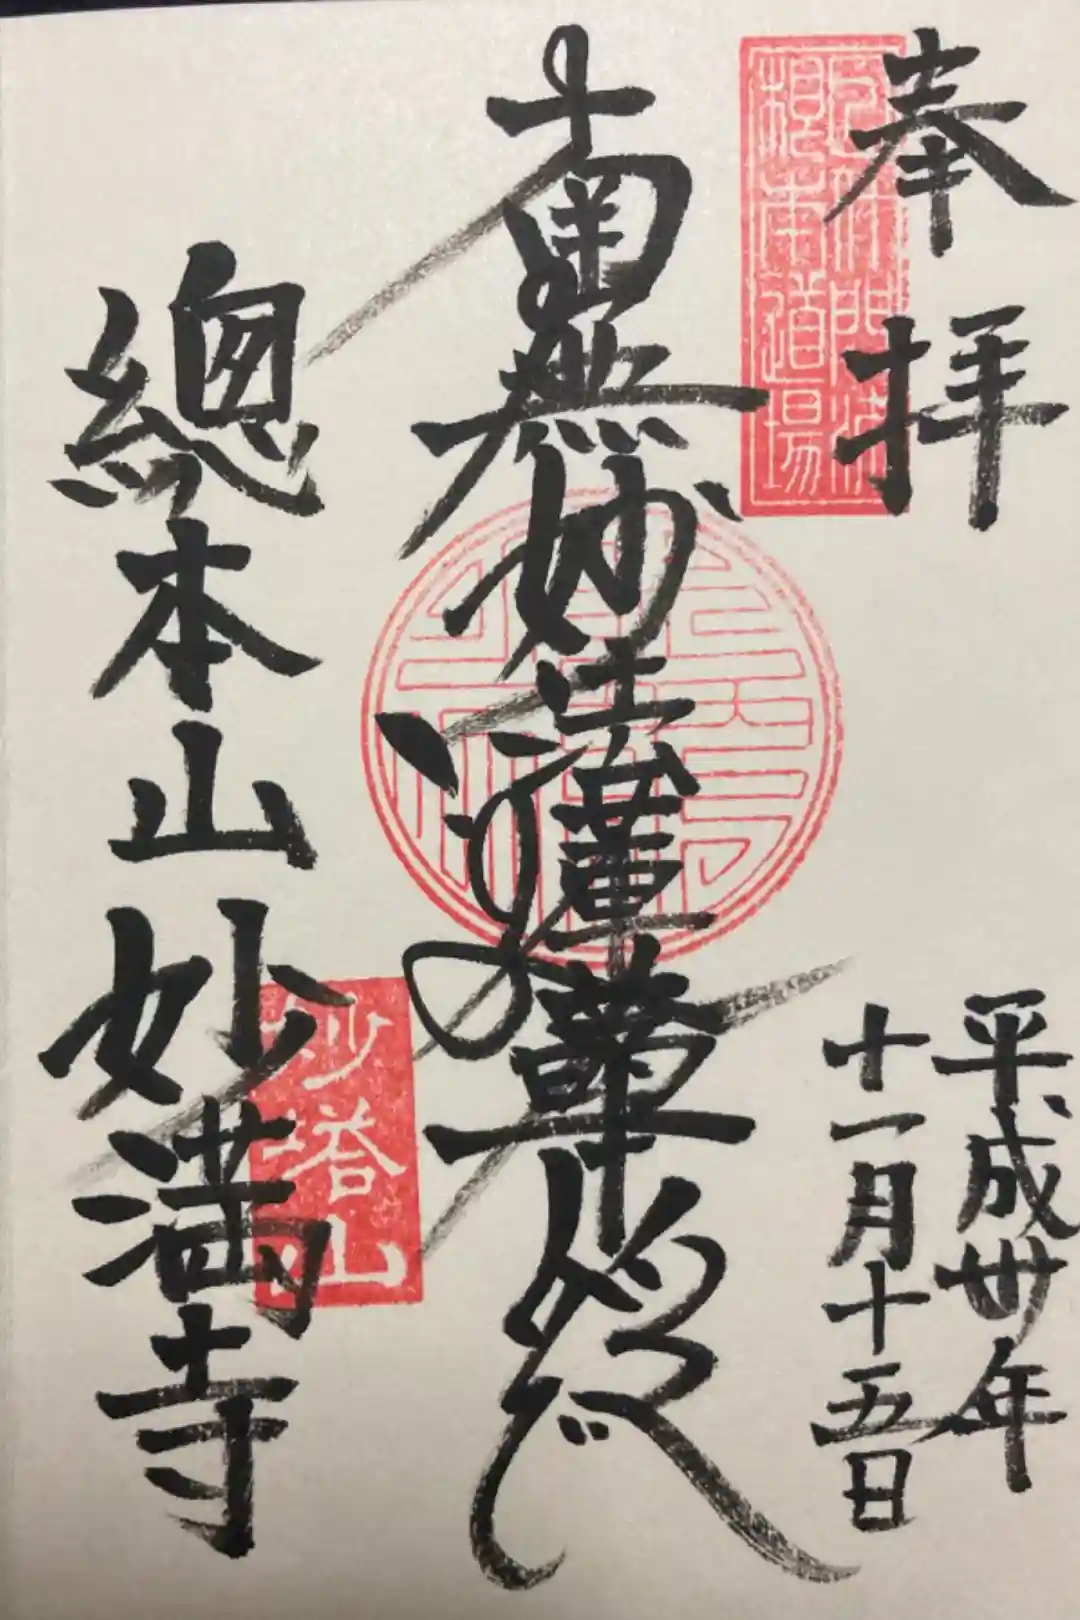 奉拝
平成卅年
十一月十五日
根本道場
南無妙法蓮華経
總本山妙満寺
妙塔山